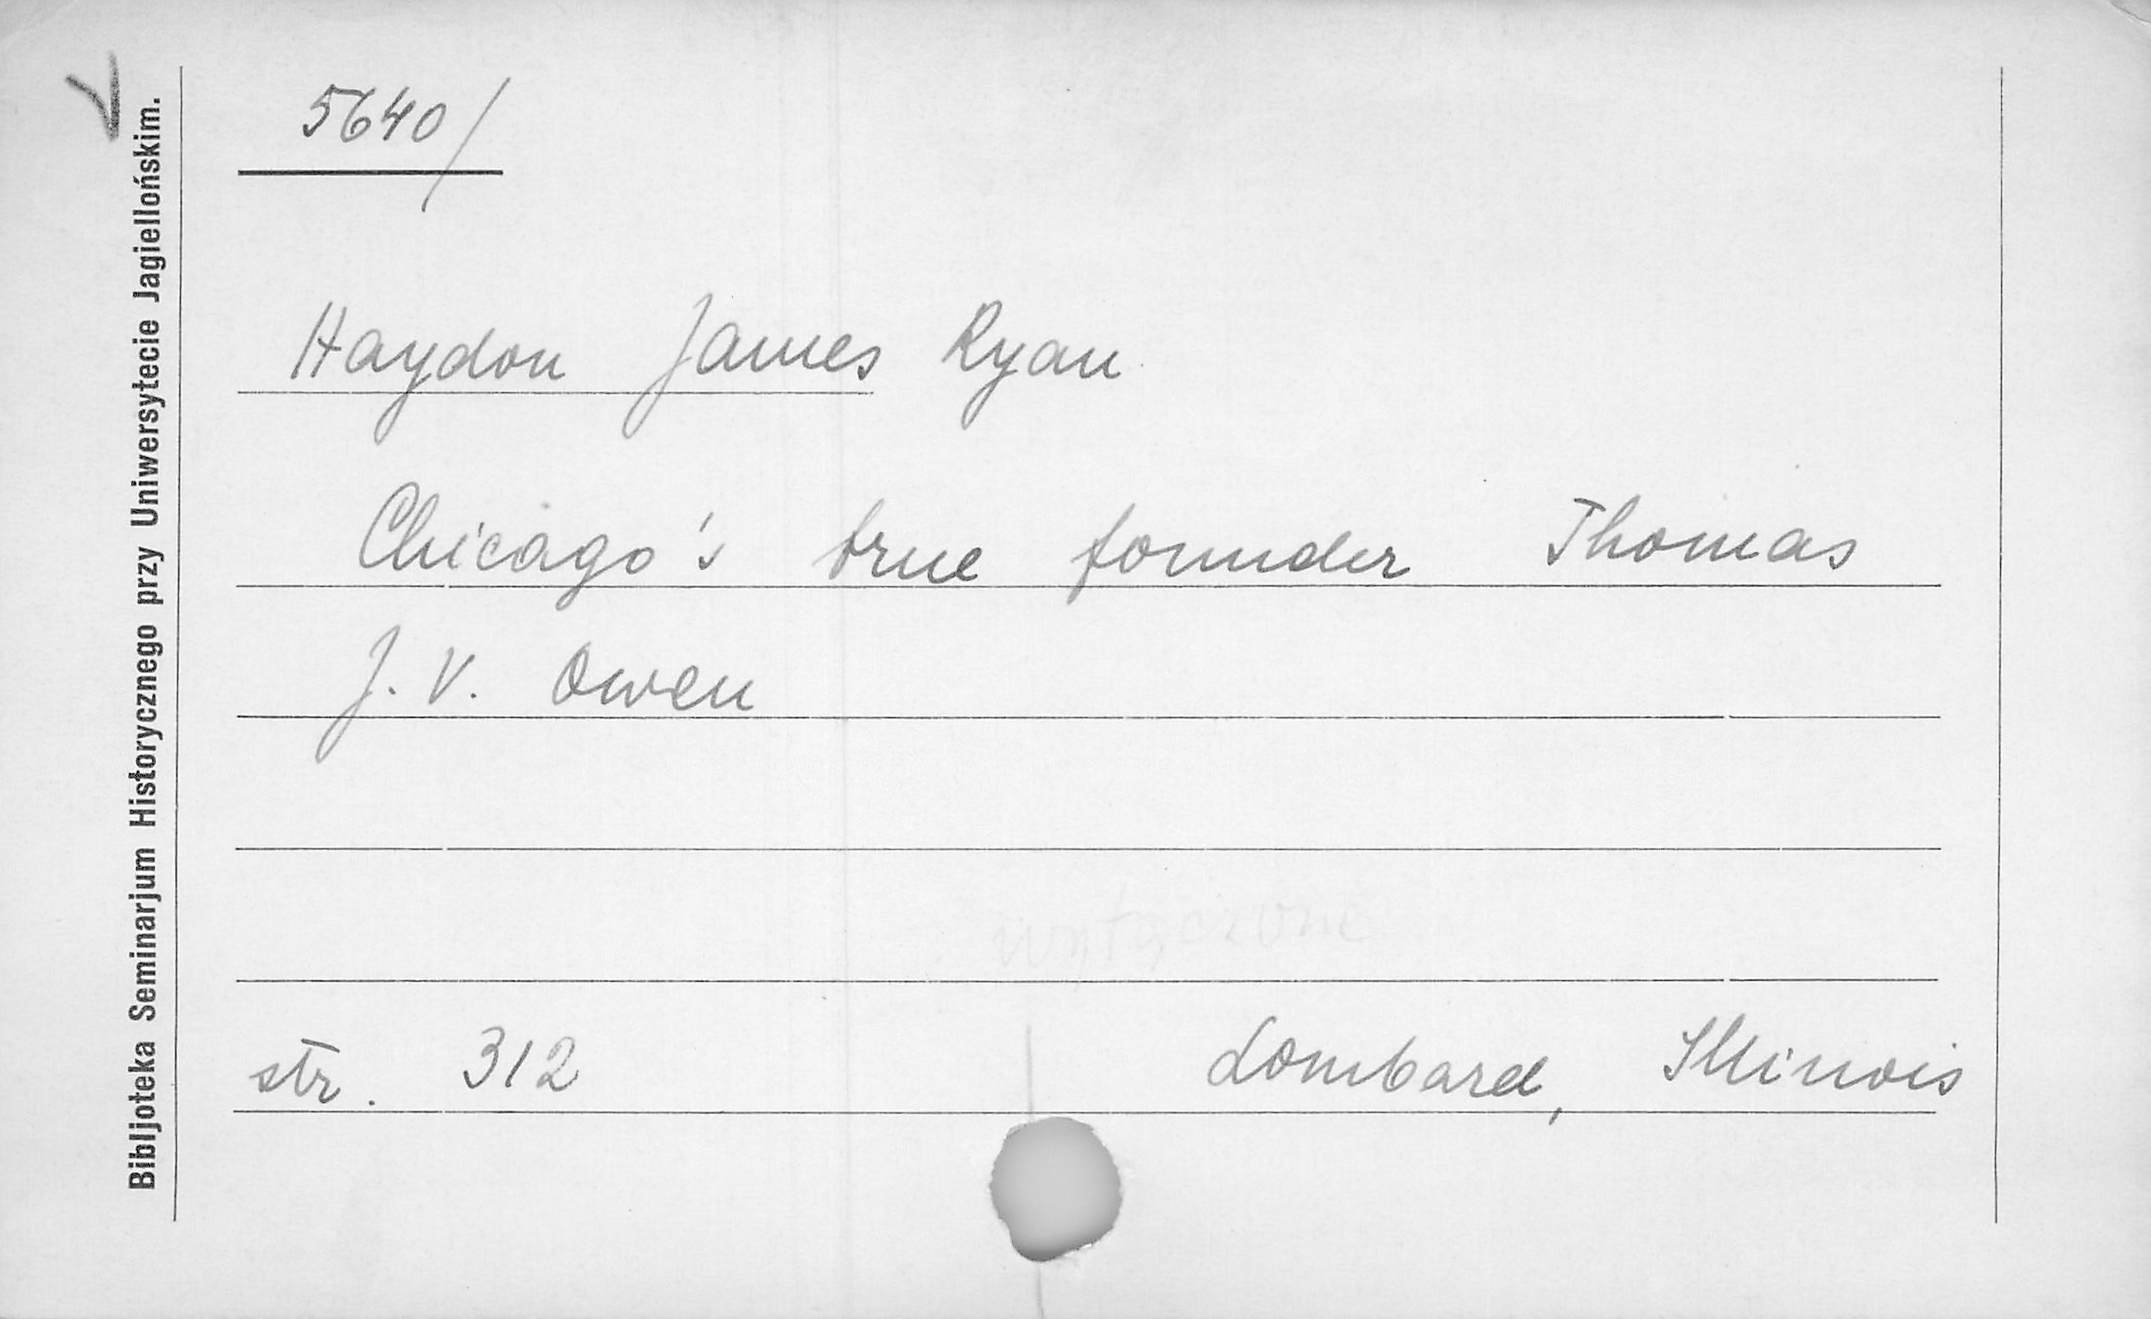 Bibljoteka Seminarjum Historycznego przy Uniwersytecie Jagiellońskim.
5640/
Haydon James Ryan
Chicago's true founder Thomas
J. V. Owen
wyłączone
str. 312 Lombard, Illinois